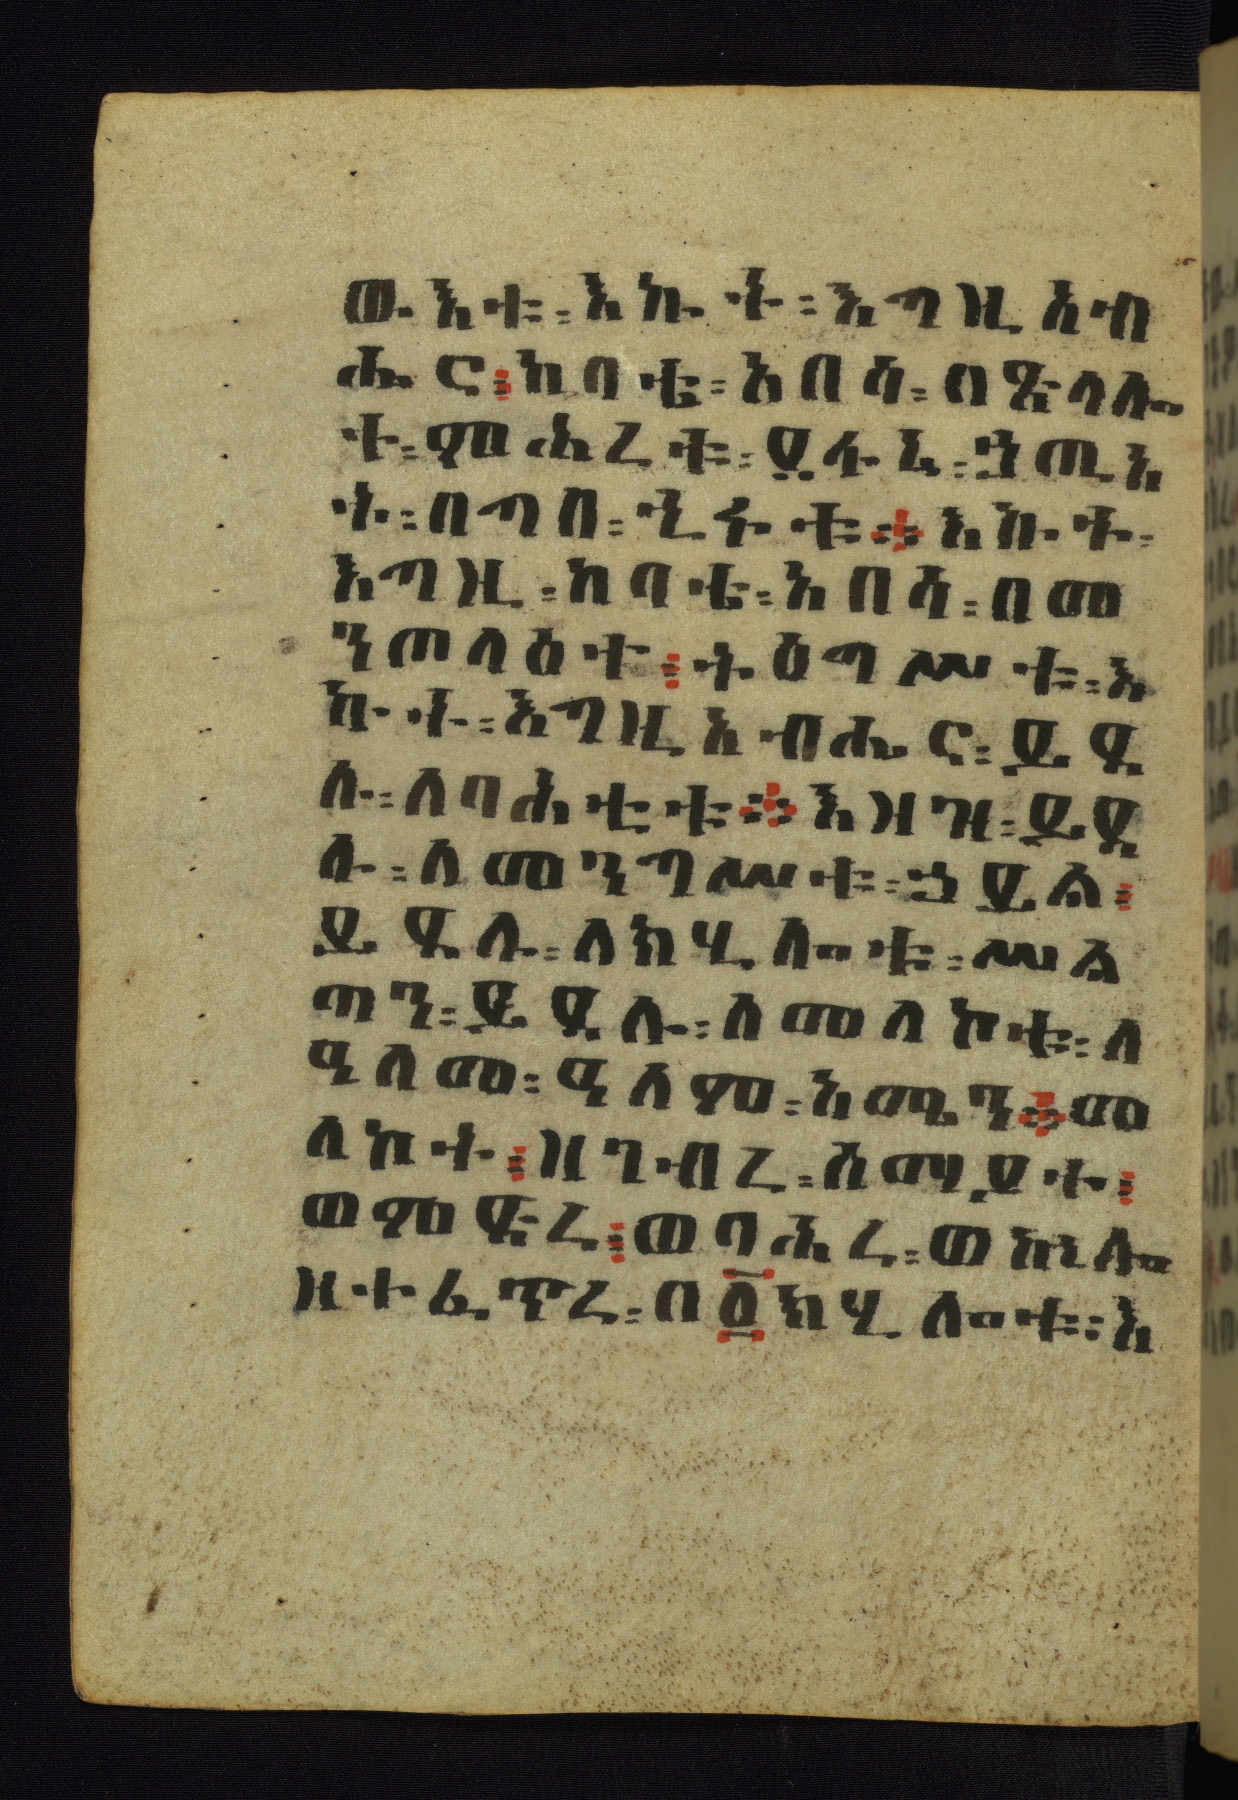 ውእቱ፡እኩት፡እግዚአብ
ሔር፡ከባቴ፡አበሳ፡በጽላሎ
ት፡ምሕረቱ፡ይፉኒ፡ኃጢአ
ት፡በግበ፡ኂሩቱ፨አኩት፡
እግዚ፡ከባቴ፡አበሳ፡በመ
ንጦላዕተ፡ትዕግሥቱ፡እ
ኩት፡እግዚአብሔር፡ይደ
ሉ፡ለባሕቲቱ፨እዝዝ፡ይደ
ሉ፡ለመንግሥቱ፡ኃይል፡
ይደሉ፡ለክሂሎቱ፡ሥል
ጣን፡ይደሉ፡ለመለኮቱ፡ለ
ዓለመ፡ዓለም፡አሜን፨መ
ለኮት፡ዘገብረ፡ሰማየት፡
ወምድረ፡ወባሕረ፡ወኵሎ
ዘተፈጥረ፡በ፩ክሂሎቱ፡እ